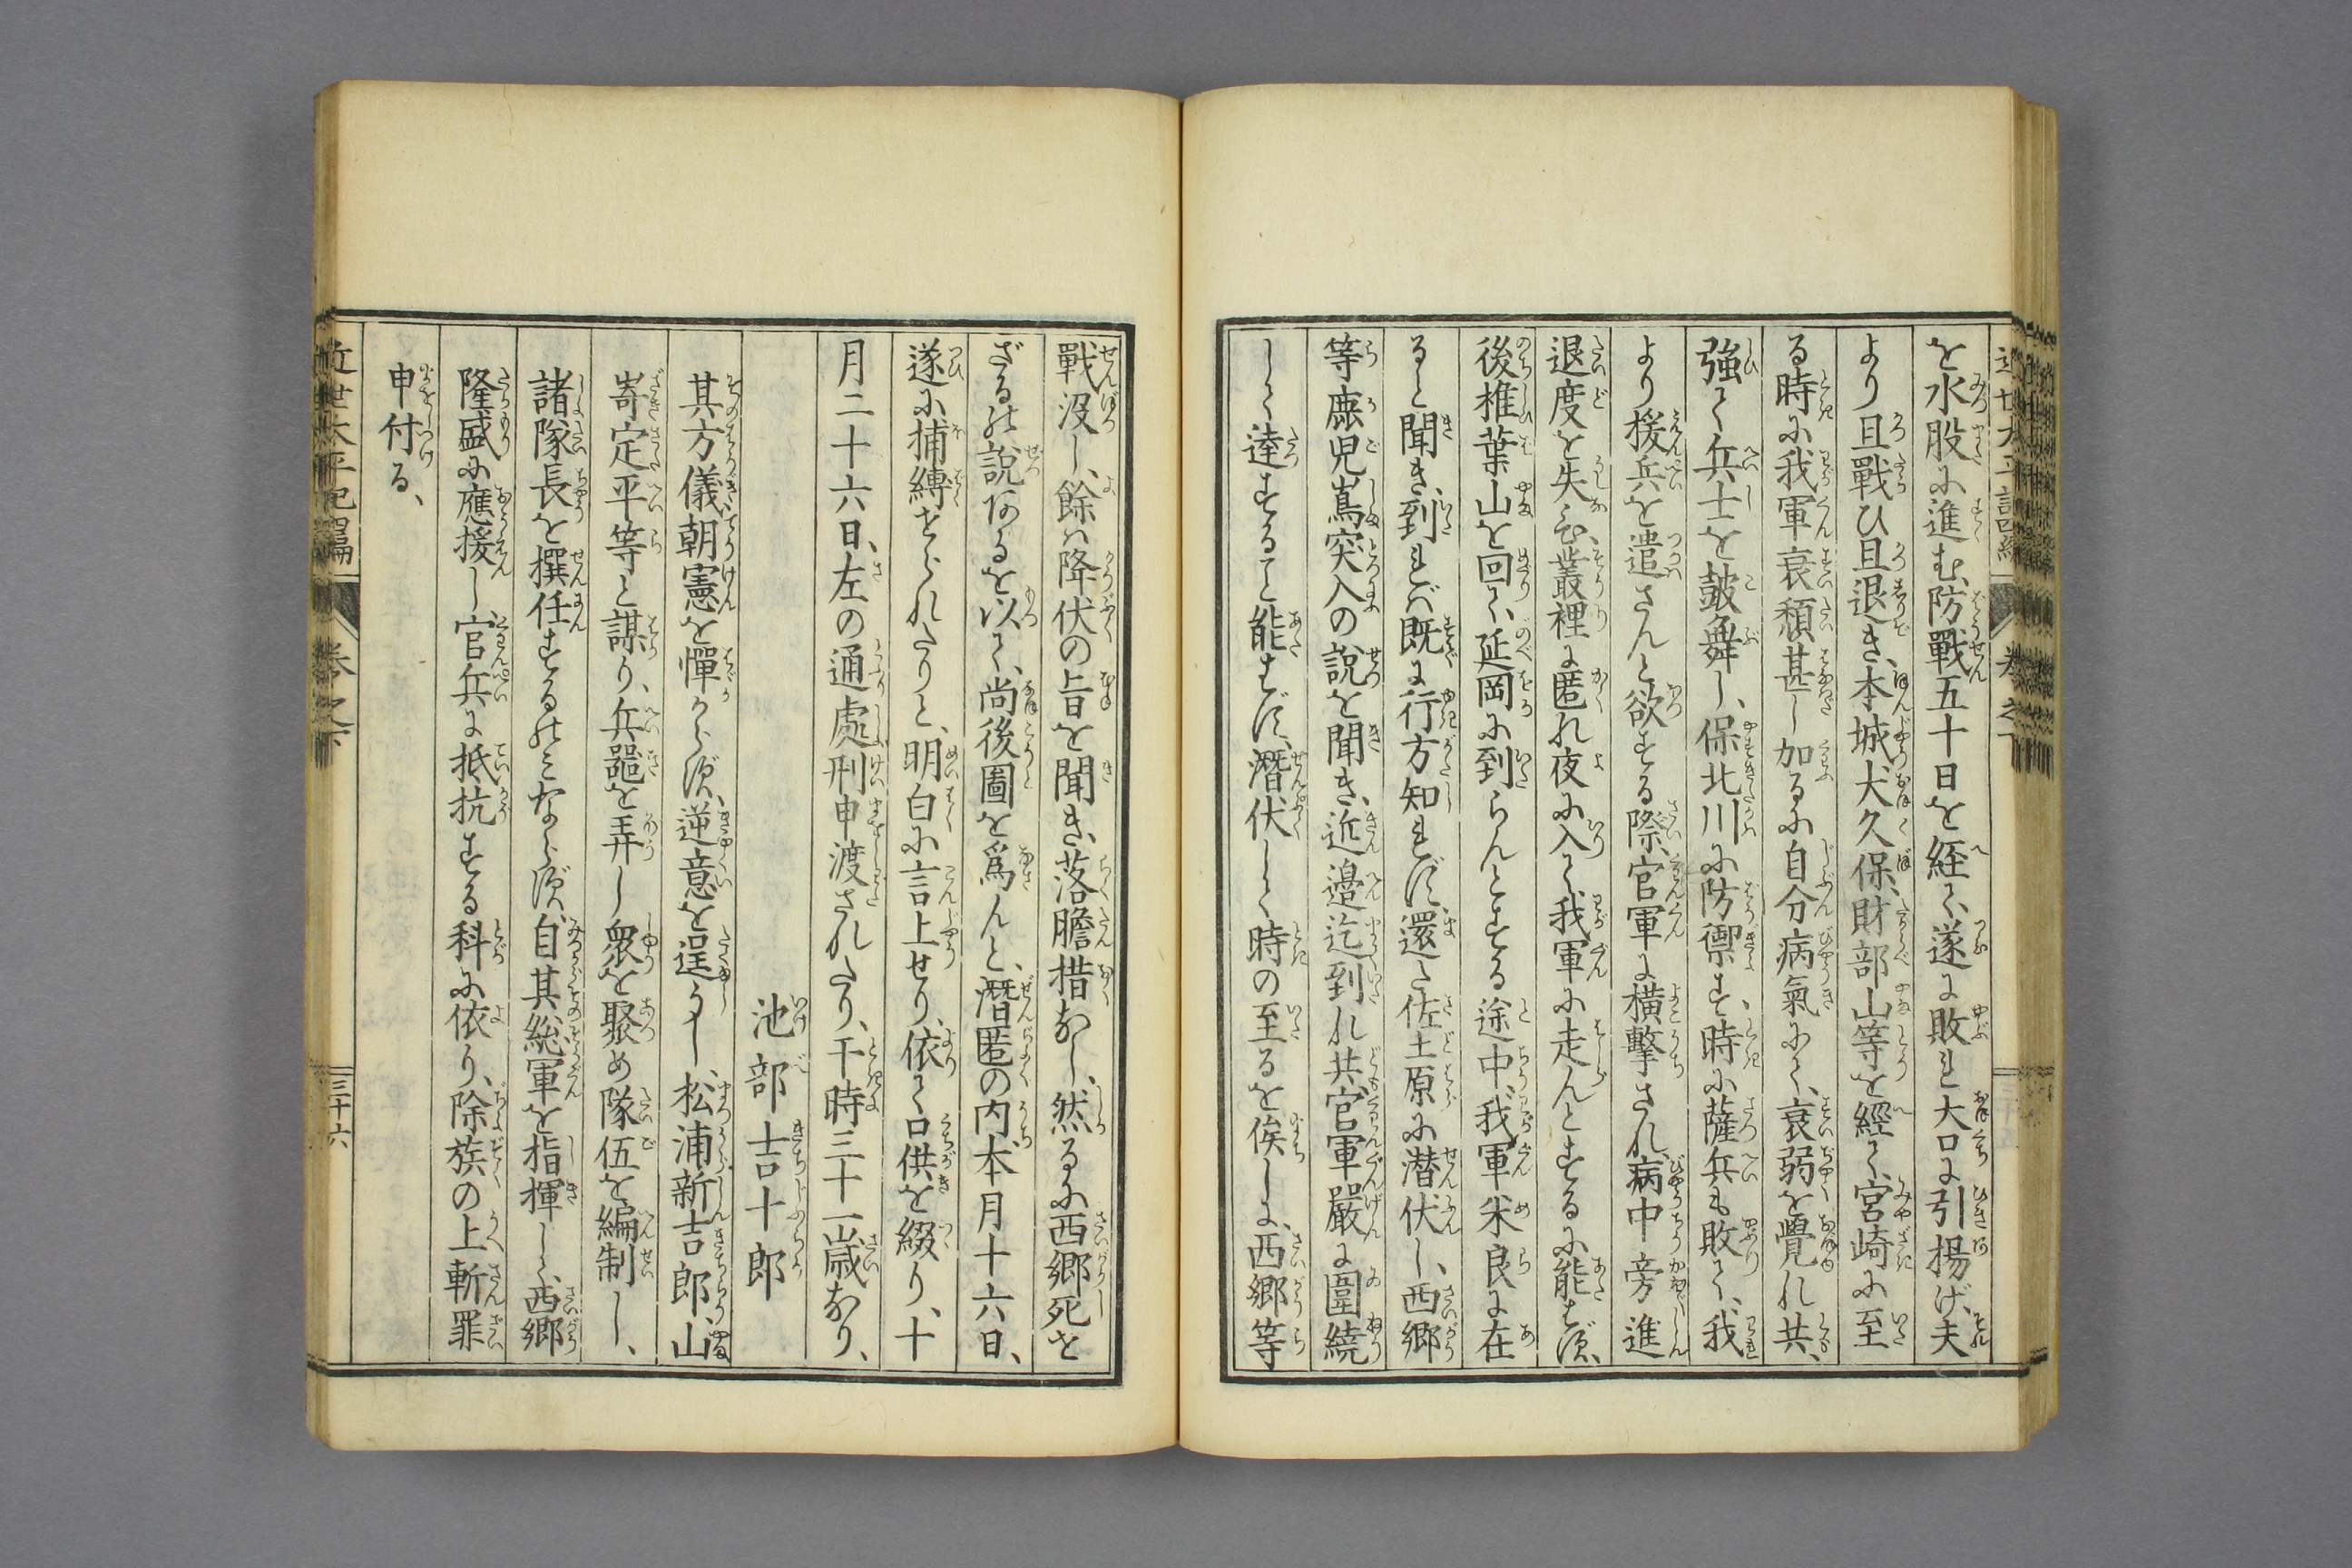 を水股に進む、防戰五十日を経て、遂に敗れ大口に引揚げ、夫
より且戰ひ且退き、本城、大久保、財部山等を經て、宮崎に至
る時に我軍衰頽甚し加るに自分病氣にて、衰弱を覺れ共、
強て兵士を皷舞し、保北川に防禦す、時に薩兵も敗て、我
より援兵を遣さんと欲する際、官軍に横擊され、病中旁進
退度を失ひ、叢裡に匿れ夜に入て我軍に走んとするに能はず、
後椎葉山を回て、延岡に到らんとする途中、我軍米良に在
ると聞き、到れば既に行方知れず、還た佐土原に潜伏し、西郷
等鹿児嶌突入の說を聞き、近邉迄到れ共、官軍嚴に圍繞
して達すること能はず、潜伏して時の至るを俟しに、西郷等
戰沒し、餘は降伏の旨を聞き、落膽措なし、然るに西郷死せ
ざるの說あるを以て、尚後圖を爲んと、潛匿の内、本月十六日、
遂に捕縛せられたりと、明白に言上せり、依て口供を綴り、十
月二十六日、左の通處刑申渡されたり、于時三十一歳なり、
池部吉十郎
其方儀朝憲を憚からず、逆意を逞うし、松浦新吉郎、山
嵜定平等と謀り、兵噐を弄し衆を聚め隊伍を編制し、
諸隊長を撰任するのみならず、自其総軍を指揮して、西郷
隆盛に應援し、官兵に抵抗する科に依り、除族の上斬罪
申付る、
近世太平記編 巻之下 三十六